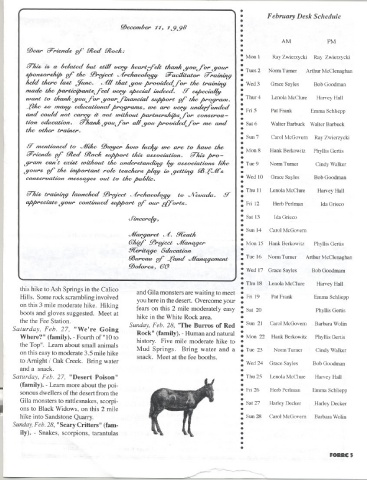 December 11, 1998
Dear Friends of Red Rock:
This is a belated but still very heart-felt thank you for your
sponsorship of the Project Archaeology Facilitator Training
held there last June. All that you provided for the training
made the participants feel very special indeed. I especially
want to thank you for your financial support of the program.
Like so many educational programs, we are underfunded
and could not carry it out without partnerships for conserva-
tion education. Thank you for all you provided for me and
the other trainer.
I mentioned to Mike Dwyer how lucky we are to have the
Friends of Red Rock support this association. This pro-
gram can't exist without the understanding by associations like
yours of the important role teachers play in getting BLM's
conservation messages out to the public.
This training launched Project Archaeology to Nevada. I
appreciate your continued support of our efforts.
Sincerely,
Margaret A. Heath
Chief Project Manager
Heritage Education
Bureau of Land Management
Dolores, CO
this hike to Ash Springs in the Calico
Hills. Some rock scrambling involved
on this 3 mile moderate hike. Hiking
boots and gloves suggested. Meet at
the the Fee Station.
Saturday, Feb. 27, "We're Going
Where?" (family). - Fourth of "10 to
the Top". Learn about small animals
on this easy to moderate 3.5 mile hike
to Arnight / Oak Creek. Bring water
and a snack.
Saturday, Feb. 27, "Desert Poison"
(family). - Learn more about the poi-
sonous dwellers of the desert from the
Gila monsters to rattlesnakes, scorpi-
ons to Black Widows, on this 2 mile
hike into Sandstone Quarry.
Sunday, Feb. 28, "Scary Critters" (fam-
ily). - Snakes, scorpions, tarantulas
and Gila monsters are waiting to meet
you here in the desert. Overcome your
fears on this 2 mile moderately easy
hike in the White Rock area.
Sunday, Feb. 28, "The Burros of Red
Rock" (family). - Human and natural
history. Five mile moderate hike to
Mud Springs. Bring water and a
snack. Meet at the fee booths.
February Desk Schedule
AM PM
Mon 1 Ray Zwierzycki Ray Zwierzycki
Tues 2 Norm Turner Arthur McClenaghan
Wed 3 Grace Sayles Bob Goodman
Thur 4 Lenola McClure Harvey Hall
Fri 5 Pat Frank Emma Schlepp
Sat 6 Walter Burback Walter Burback
Sun 7 Carol McGovern Ray Zwierzycki
Mon 8 Hank Berkowitz Phyllis Gertis
Tue 9 Norm Turner Cindy Walker
Wed 10 Grace Sayles Bob Goodman
Thu 11 Lenola McClure Harvey Hall
Fri 12 Herb Perlman Ida Grieco
Sat 13 Ida Grieco
Sun 14 Carol McGovern
Mon 15 Hank Berkowitz Phyllis Gertis
Tue 16 Norm Turner Arthur McClenaghan
Wed 17 Grace Sayles Bob Goodman
Thu 18 Lenola McClure Harvey Hall
Fri 19 Pat Frank Emma Schlepp
Sat 20 Phyllis Gertis
Sun 21 Carol McGovern Barbara Wolin
Mon 22 Hank Berkowitz Phyllis Gertis
Tue 23 Norm Turner Cindy Walker
Wed 24 Grace Sayles Bob Goodman
Thu 25 Lenola McClure Harvey Hall
Fri 26 Herb Perlman Emma Schlepp
Sat 27 Harley Decker Harley Decker
Sun 28 Carol McGovern Barbara Wolin
FORRC 3